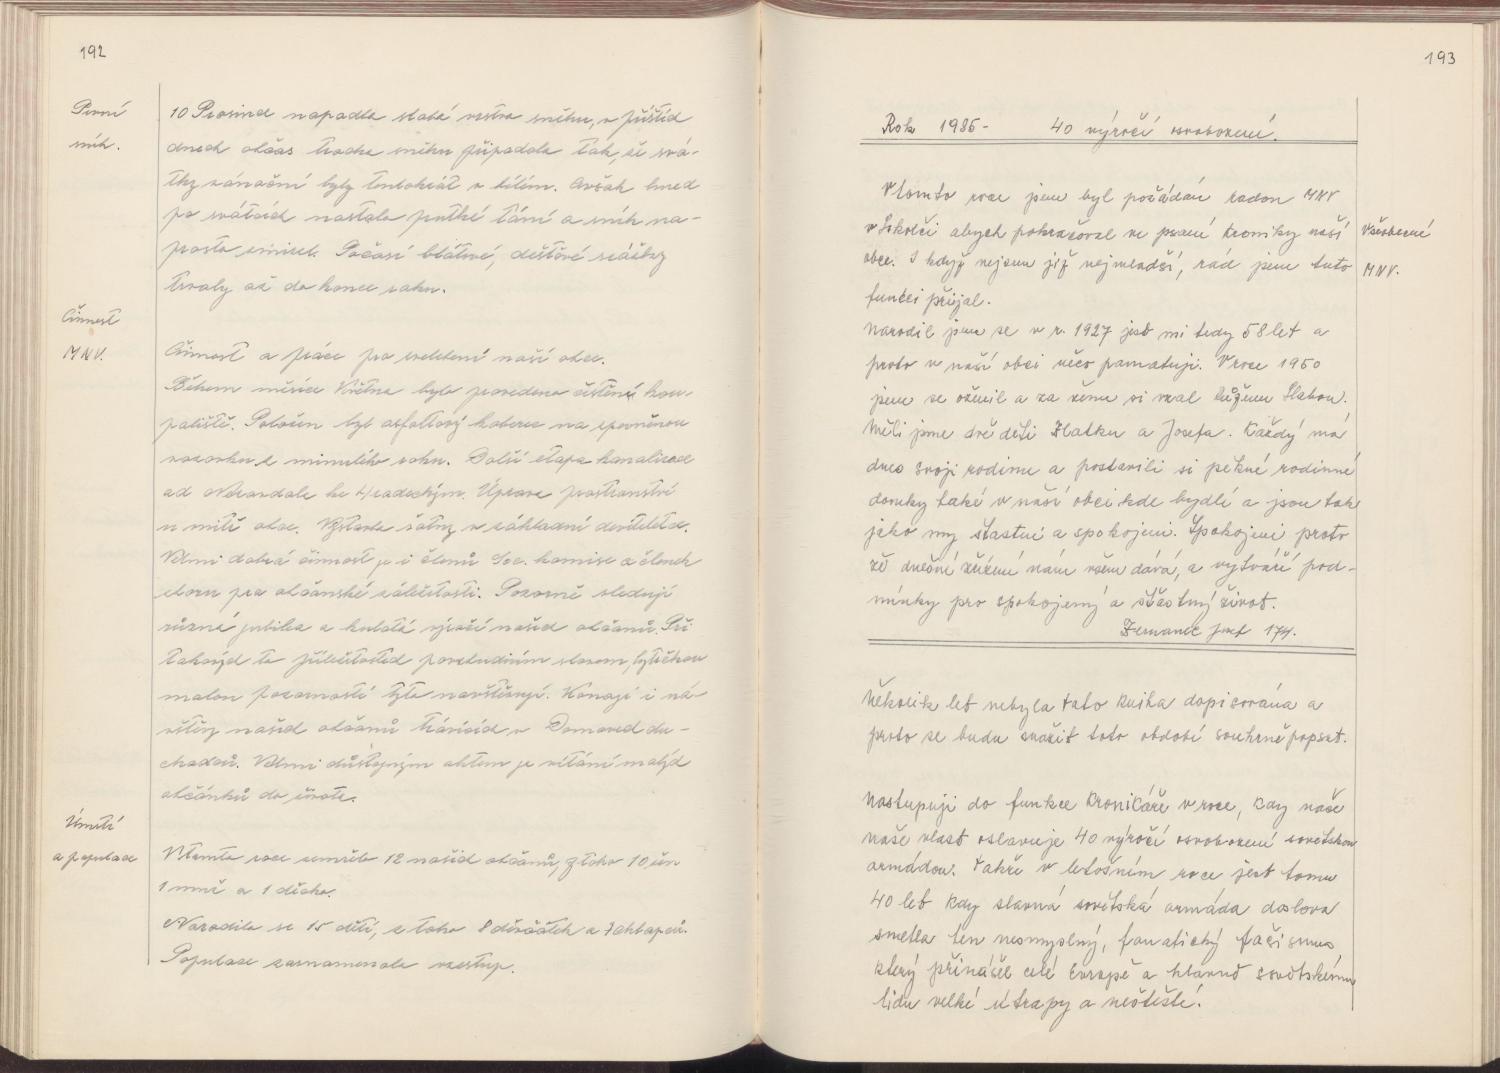 192
První
sníh.
10 Prosince napadla slabá vrstva sněhu, v příštích
dnech občas trocha sněhu připadala tak, že svá-
tky vánoční byly tentokrát v bílém. Avšak hned
po svátcích nastalo prudké tání a sníh na-
prosto zmizel. Počasí blátivé, dešťové srážky
trvaly až do konce roku.
Činnost
MNV.
Činnost a práce pro zvelebení naší obce.
Během měsíce Května bylo provedeno čištění kou-
paliště. Položen byl asfaltový koberec na zpevněnou
vozovku z minulého roku. Další etapa kanalizace
od Nohavala ke Hradeckým. Úprava prostranství
u míst obce. Výstavba šatny v základní devítiletce.
Velmi dobrá činnost je i členů Soc. komise a členek
sboru pro občanské záležitosti. Pozorně sledují
různé jubilea a kulatá výročí našich občanů. Při
takových to příležitostech povzbudivým slovem, kytičkou
malou pozorností tyto navštěvují. Konají i ná-
vštěvy našich občanů trávících v Domovech dů-
chodců. Velmi důstojným aktem je vítání malých
občánků do života.
Úmrtí
a populace
V tomto roce zemřelo 12 našich občanů, z toho 10 žen
1 muž a 1 děcko.
Narodilo se 15 dětí, z toho 8 děvčátek a 7 chlapců.
Populace zaznamenala vzestup.
193
Rok 1985 - 40 výročí osvobození.
V tomto roce jsem byl požádán radou MNV
v Sokolči abych pokračoval ve psaní kroniky naší
obce. I když nejsem již nejmladší, rád jsem tuto
funkci přijal.
Všeobecné
MNV.
Narodil jsem se v r. 1927 jest mi tedy 58 let a
proto v naší obci něco pamatuji. V roce 1950
jsem se oženil a za ženu si vzal Růženu Slabou.
Měli jsme dvě děti Zlatku a Josefa. Každý má
dnes svoji rodinu a postavili si pěkné rodinné
domky také v naší obci kde bydlí a jsou tak
jako my šťastní a spokojeni. Spokojeni proto
že dnešní zřízení nám všem dává, a vytváří pod-
mínky pro spokojený a šťastný život.
Josef 174.
Několik let nebyla tato kniha dopisována a
proto se budu snažit toto období souhrně popsat.
Nastupuji do funkce kronikáře v roce, kdy naše
naše vlast oslavuje 40 výročí osvobození sovětskou
armádou. Takže v letošním roce jest tomu
40 let kdy slavná sovětská armáda doslova
smetla ten nesmyslný, fanatický fašismus
který přinášel celé Evropě a hlavně sovětskému
lidu velké útrapy a neštěstí.